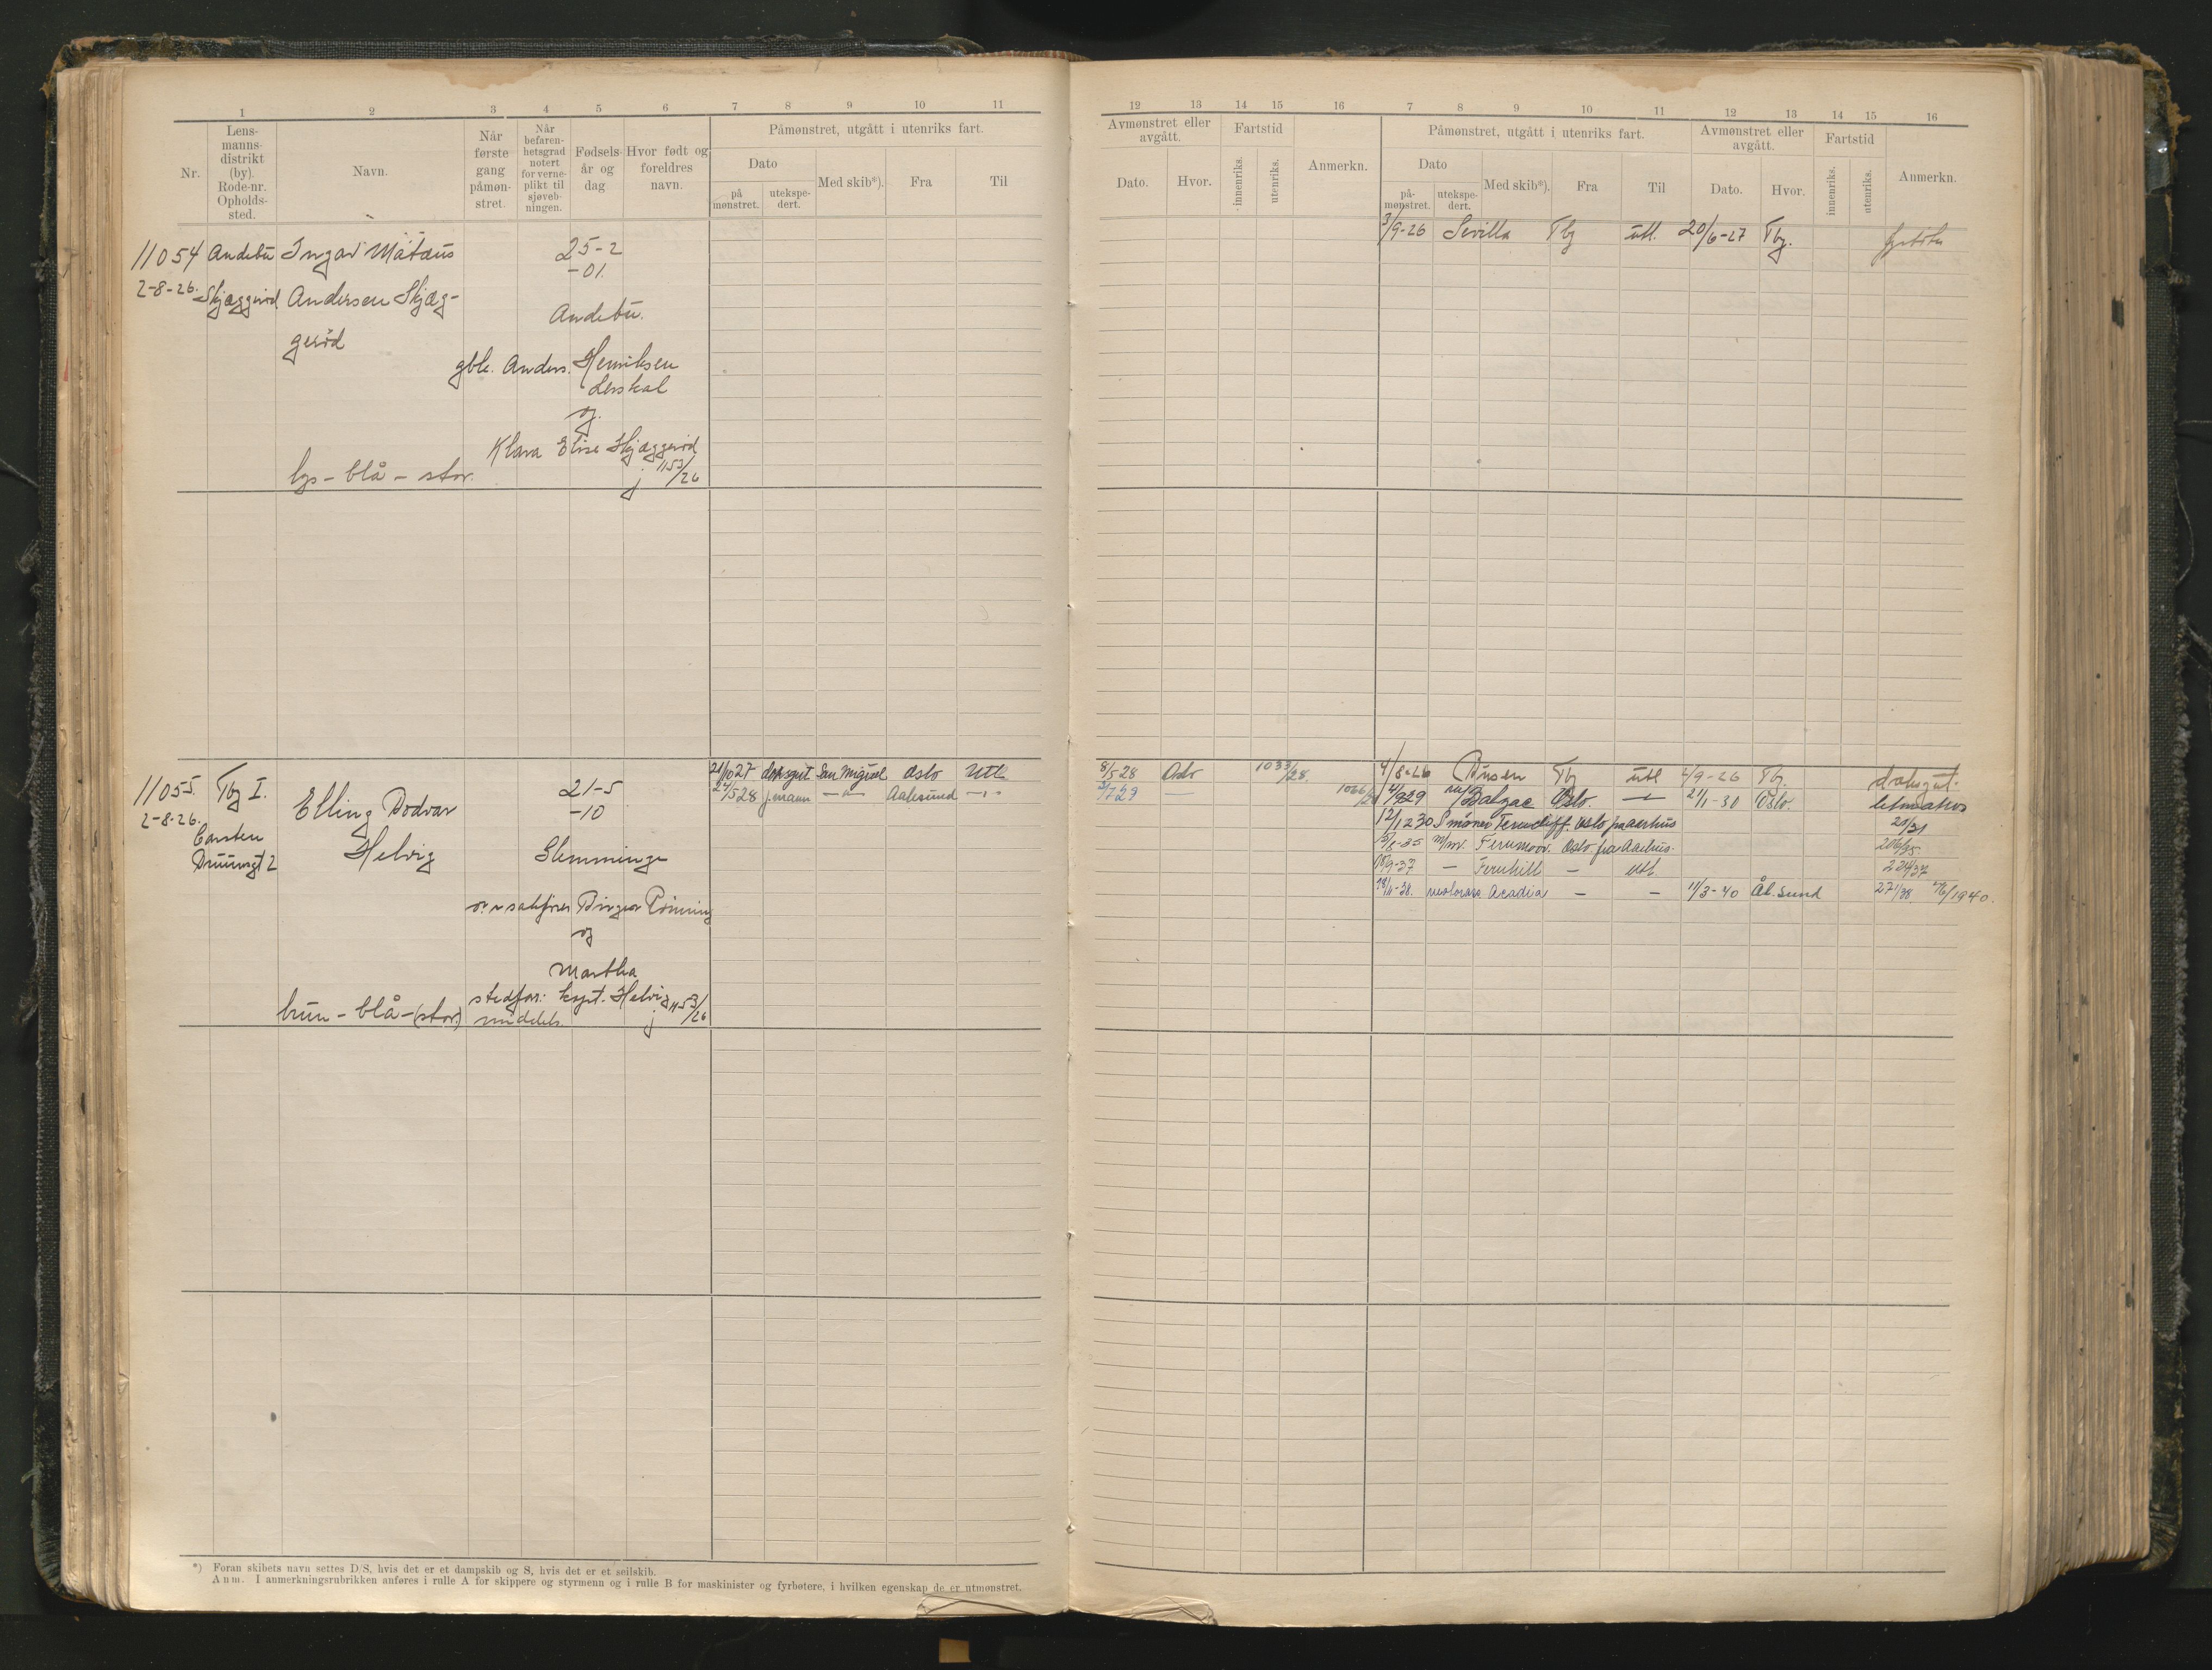 1 2 3 4 5 6 7 8 9 10 11
Nr.
Lens-
manns-
distrikt
(by).
Rode-nr.
Opholds-
sted.
Navn.
Når
første
gang
påmøn-
stret.
Når
befaren-
hetsgrad
notert
for verne-
plikt til
sjøveb-
ningen.
Fødsels-
år og
dag
Hvor født og
foreldres
navn.
Påmønstret, utgått i utenriks fart.
Dato
på
mønstret.
utekspe-
dert.
Med skib*).
Fra
Til
11054 Andebu Ingar Matæus 25-2
-01.
2-8-26. Skjæggerød Andersen Skjæg-
gerød
Andebu.
gbr. Anders Henriksen
og
Klara Elise Skjæggerød
lys - blå - stor.
j 1153/26
11055. Tbg I. Elling Bodvar 21-5
-10
2-8-26.
Carsten
Helvig Glemminge
o.r.sakfører Birger Rønning
og
Martha
stedfar: kapt. Helvig 1153/26
brun - blå - (stor) middels. j
21/10 27 dæksgut San Miguel Oslo Utl.
24/5 28 j.mann -"- Aalesund -"-
*) Foran skibets navn settes D/S, hvis det er et dampskib og S, hvis det er et seilskib.
Anm. I anmerkningsrubrikken anføres i rulle A for skippere og styrmenn og i rulle B for maskinister og fyrbøtere, i hvilken egenskap de er utmønstret.
12 13 14 15 16 7 8 9 10 11 12 13 14 15 16
Avmønstret eller
avgått.
Dato.
Hvor.
Fartstid
innenriks.
utenriks.
Anmerkn.
Påmønstret, utgått i utenriks fart.
Dato
på-
mønstret.
utekspe-
dert.
Med skib*).
Fra
Til
Avmønstret eller
avgått.
Dato.
Hvor.
Fartstid
innenriks.
utenriks.
Anmerkn.
3/9-26 Sevilla Tbg utl. 20/6-27 Tbg. fyrbøter
8/5 28 Oslo 1033/28 4/8-26 Tbg utl 2/9-26 Tbg. dæksgut.
7 29 — 4/9 29 m/s Balzac Oslo. -"- 21/1-30 Oslo. letmatros
12/12 30 Smører Ferncliff. Oslo fra Aarhus 21/31
35 m/mr. Fernmoor. Oslo. fra Aarhus. 206/35.
9-37 — Fernhill — utl. 224/37
18/11-38. Acadia — — 11/3-40 Ål.sund 271/38. 76/1940.